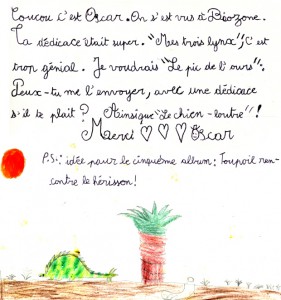 Coucou c'est Oscar. On s'est vus à Béozone.
La dédicace était super. "Mes trois lynx", c'est
trop génial. Je voudrais "Le pic de l'ours".
Peux-tu me l'envoyer, avec une dédicace
s'il te plaît ? Ainsique "Le chien-loutre"!
Merci ♡ ♡ ♡ Oscar
P.S: idée pour le cinquème album: Toupoil ren-
contre le hérisson!